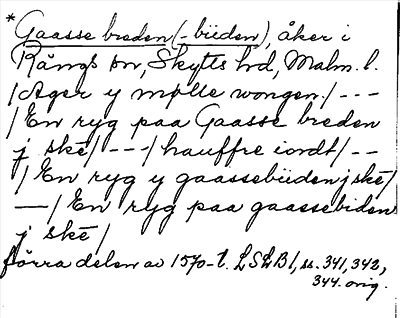 * Gaasse breden (-büden), åker i
Rängs sn, Skytts hd, Malm. l.
/Ager y mølle wongen/ - - -
/En ryg paa Gaasse breden
j skē/ - - - /hauffre iordt/ - -
/En ryg y gaassebüden j skē/
— /En ryg paa gaassebiden
j skē/
förra delen av 1570-t. LSkB 1, ss. 341, 342,
344. orig.